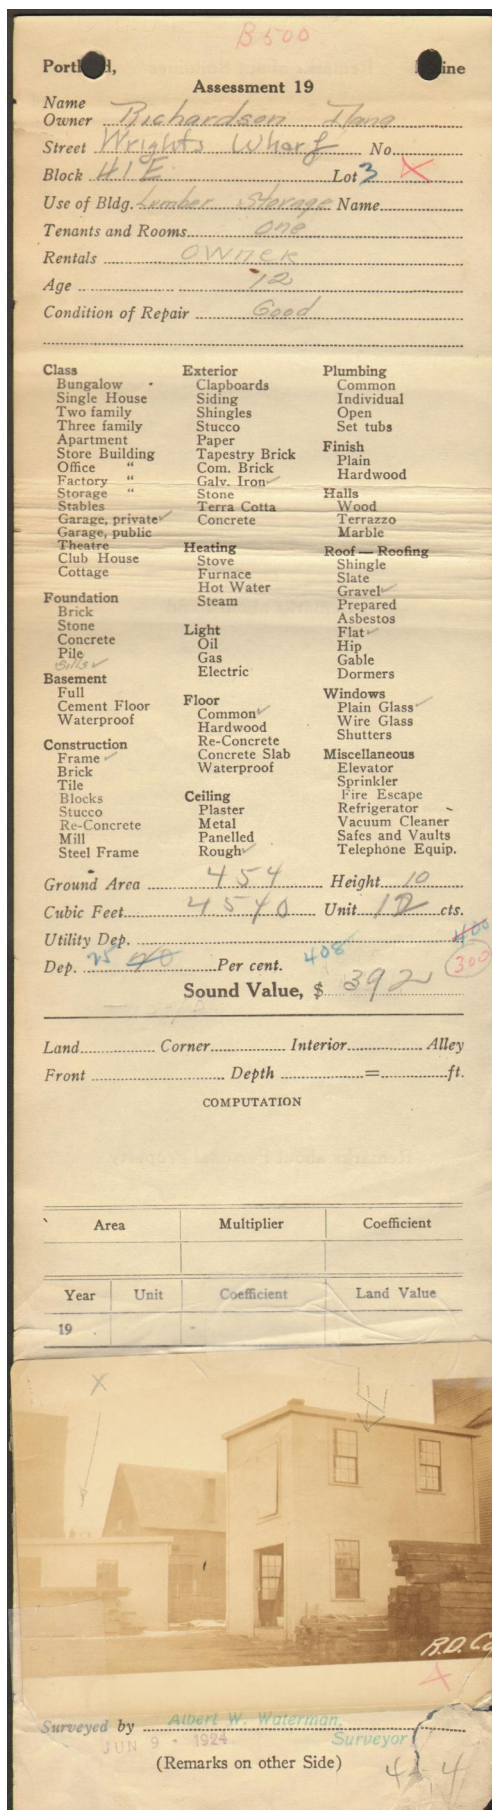 B500
Portland, Maine
Assessment 19
Name
Owner Richardson Dana
Street Wrights Wharf No.
Block 41E Lot 3 X
Use of Bldg. Lumber Storage Name
Tenants and Rooms one
Rentals OWNER
Age 12
Condition of Repair Good
Class
Bungalow
Single House
Two family
Three family
Apartment
Store Building
Office "
Factory "
Storage "
Stables
Garage, private ✓
Garage, public
Theatre
Club House
Cottage
Foundation
Brick
Stone
Concrete
Pile
Sills ✓
Basement
Full
Cement Floor
Waterproof
Construction
Frame ✓
Brick
Tile
Blocks
Stucco
Re-Concrete
Mill
Steel Frame
Exterior
Clapboards
Siding
Shingles
Stucco
Paper
Tapestry Brick
Com. Brick
Galv. Iron ✓
Stone
Terra Cotta
Concrete
Heating
Stove
Furnace
Hot Water
Steam
Light
Oil
Gas
Electric
Floor
Common ✓
Hardwood
Re-Concrete
Concrete Slab
Waterproof
Ceiling
Plaster
Metal
Panelled
Rough ✓
Plumbing
Common
Individual
Open
Set tubs
Finish
Plain
Hardwood
Halls
Wood
Terrazzo
Marble
Roof — Roofing
Shingle
Slate
Gravel ✓
Prepared
Asbestos
Flat ✓
Hip
Gable
Dormers
Windows
Plain Glass ✓
Wire Glass
Shutters
Miscellaneous
Elevator
Sprinkler
Fire Escape
Refrigerator
Vacuum Cleaner
Safes and Vaults
Telephone Equip.
Ground Area 454 Height 10
Cubic Feet 4540 Unit 12 cts.
Utility Dep. 400
Dep. 25 40 Per cent. 408 300
Sound Value, $ 392
Land Corner Interior Alley
Front Depth = ft.
COMPUTATION
Area Multiplier Coefficient
Year Unit Coefficient Land Value
19
X
R.D. Co
X
Surveyed by Albert W. Waterman,
JUN 9 - 1924 Surveyor
(Remarks on other Side)